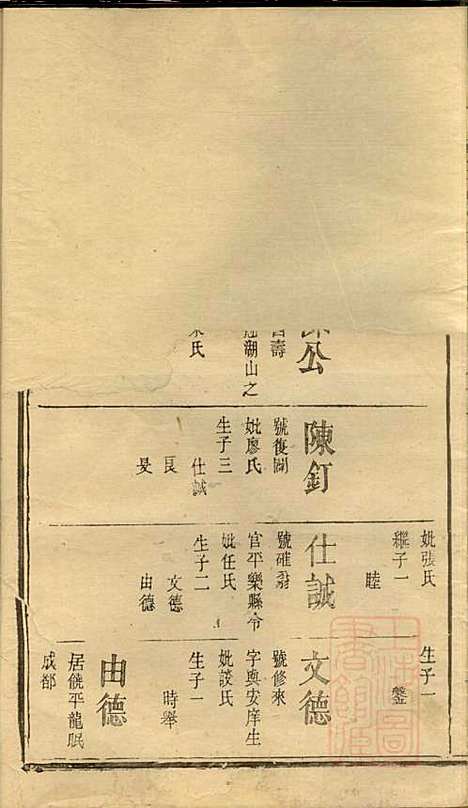 妣張氏
繼子一
睦
生子一
鑿
公
壽
湖山之
氏
陳釘
號復
妣廖氏
生子三
仕誠
良
旻
仕誠
號確翁
官平樂縣令
妣任氏
生子二
文德
由德
文德
號修來
字輿安庠生
妣談氏
生子一
時舉
由德
居饒平龍眠
成都